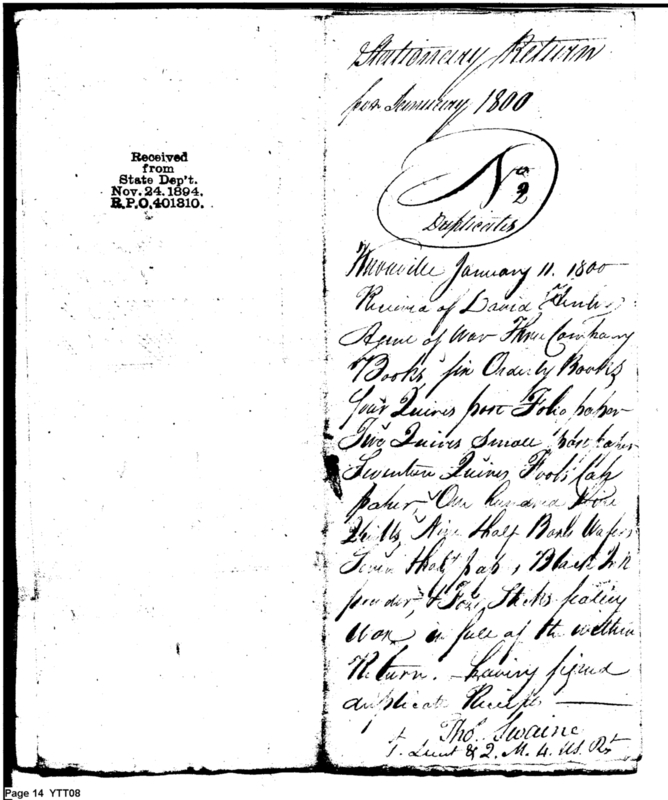 Received
from
State Dep't.
Nov. 24. 1894.
R.P.O. 401310.
Stationary Return
for January 1800
No 2
Duplicates
Knoxville January 11. 1800
Received of David Henley
Agent of War Three Company
Books, six Orderly Books
four Quires post Folio paper
Two Quires small post paper
Seventeen Quires Fools Cap
paper, One hundred
Quills, Nine Half Boxes Wafers
Seven Half pap, Black Ink
powder, & Sticks sealing
Wax in full of the within
Return. having signed
duplicate Receipts
Tho. Swaine
1. Lieut & Q. M. 4. US. Rt
Page 14 YTT08